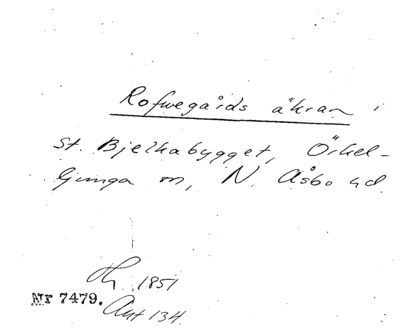 Rofwegårds åkran i
St. Bjelkabygget, Örkel-
ljunga sn, N. Åsbo hd
1851
Nr 7479.
Ant 134